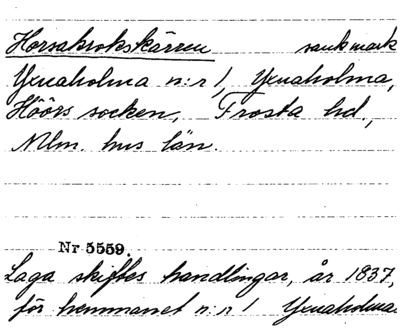 Horsakrokskärren sankmark
Yxnaholma n:r 1, Yxnaholma,
Höörs socken, Frosta hd,
Mlm. hus län.
Nr 5559.
Laga skiftes handlingar, år 1837,
för hemmanet n:r 1 Yxnaholma.